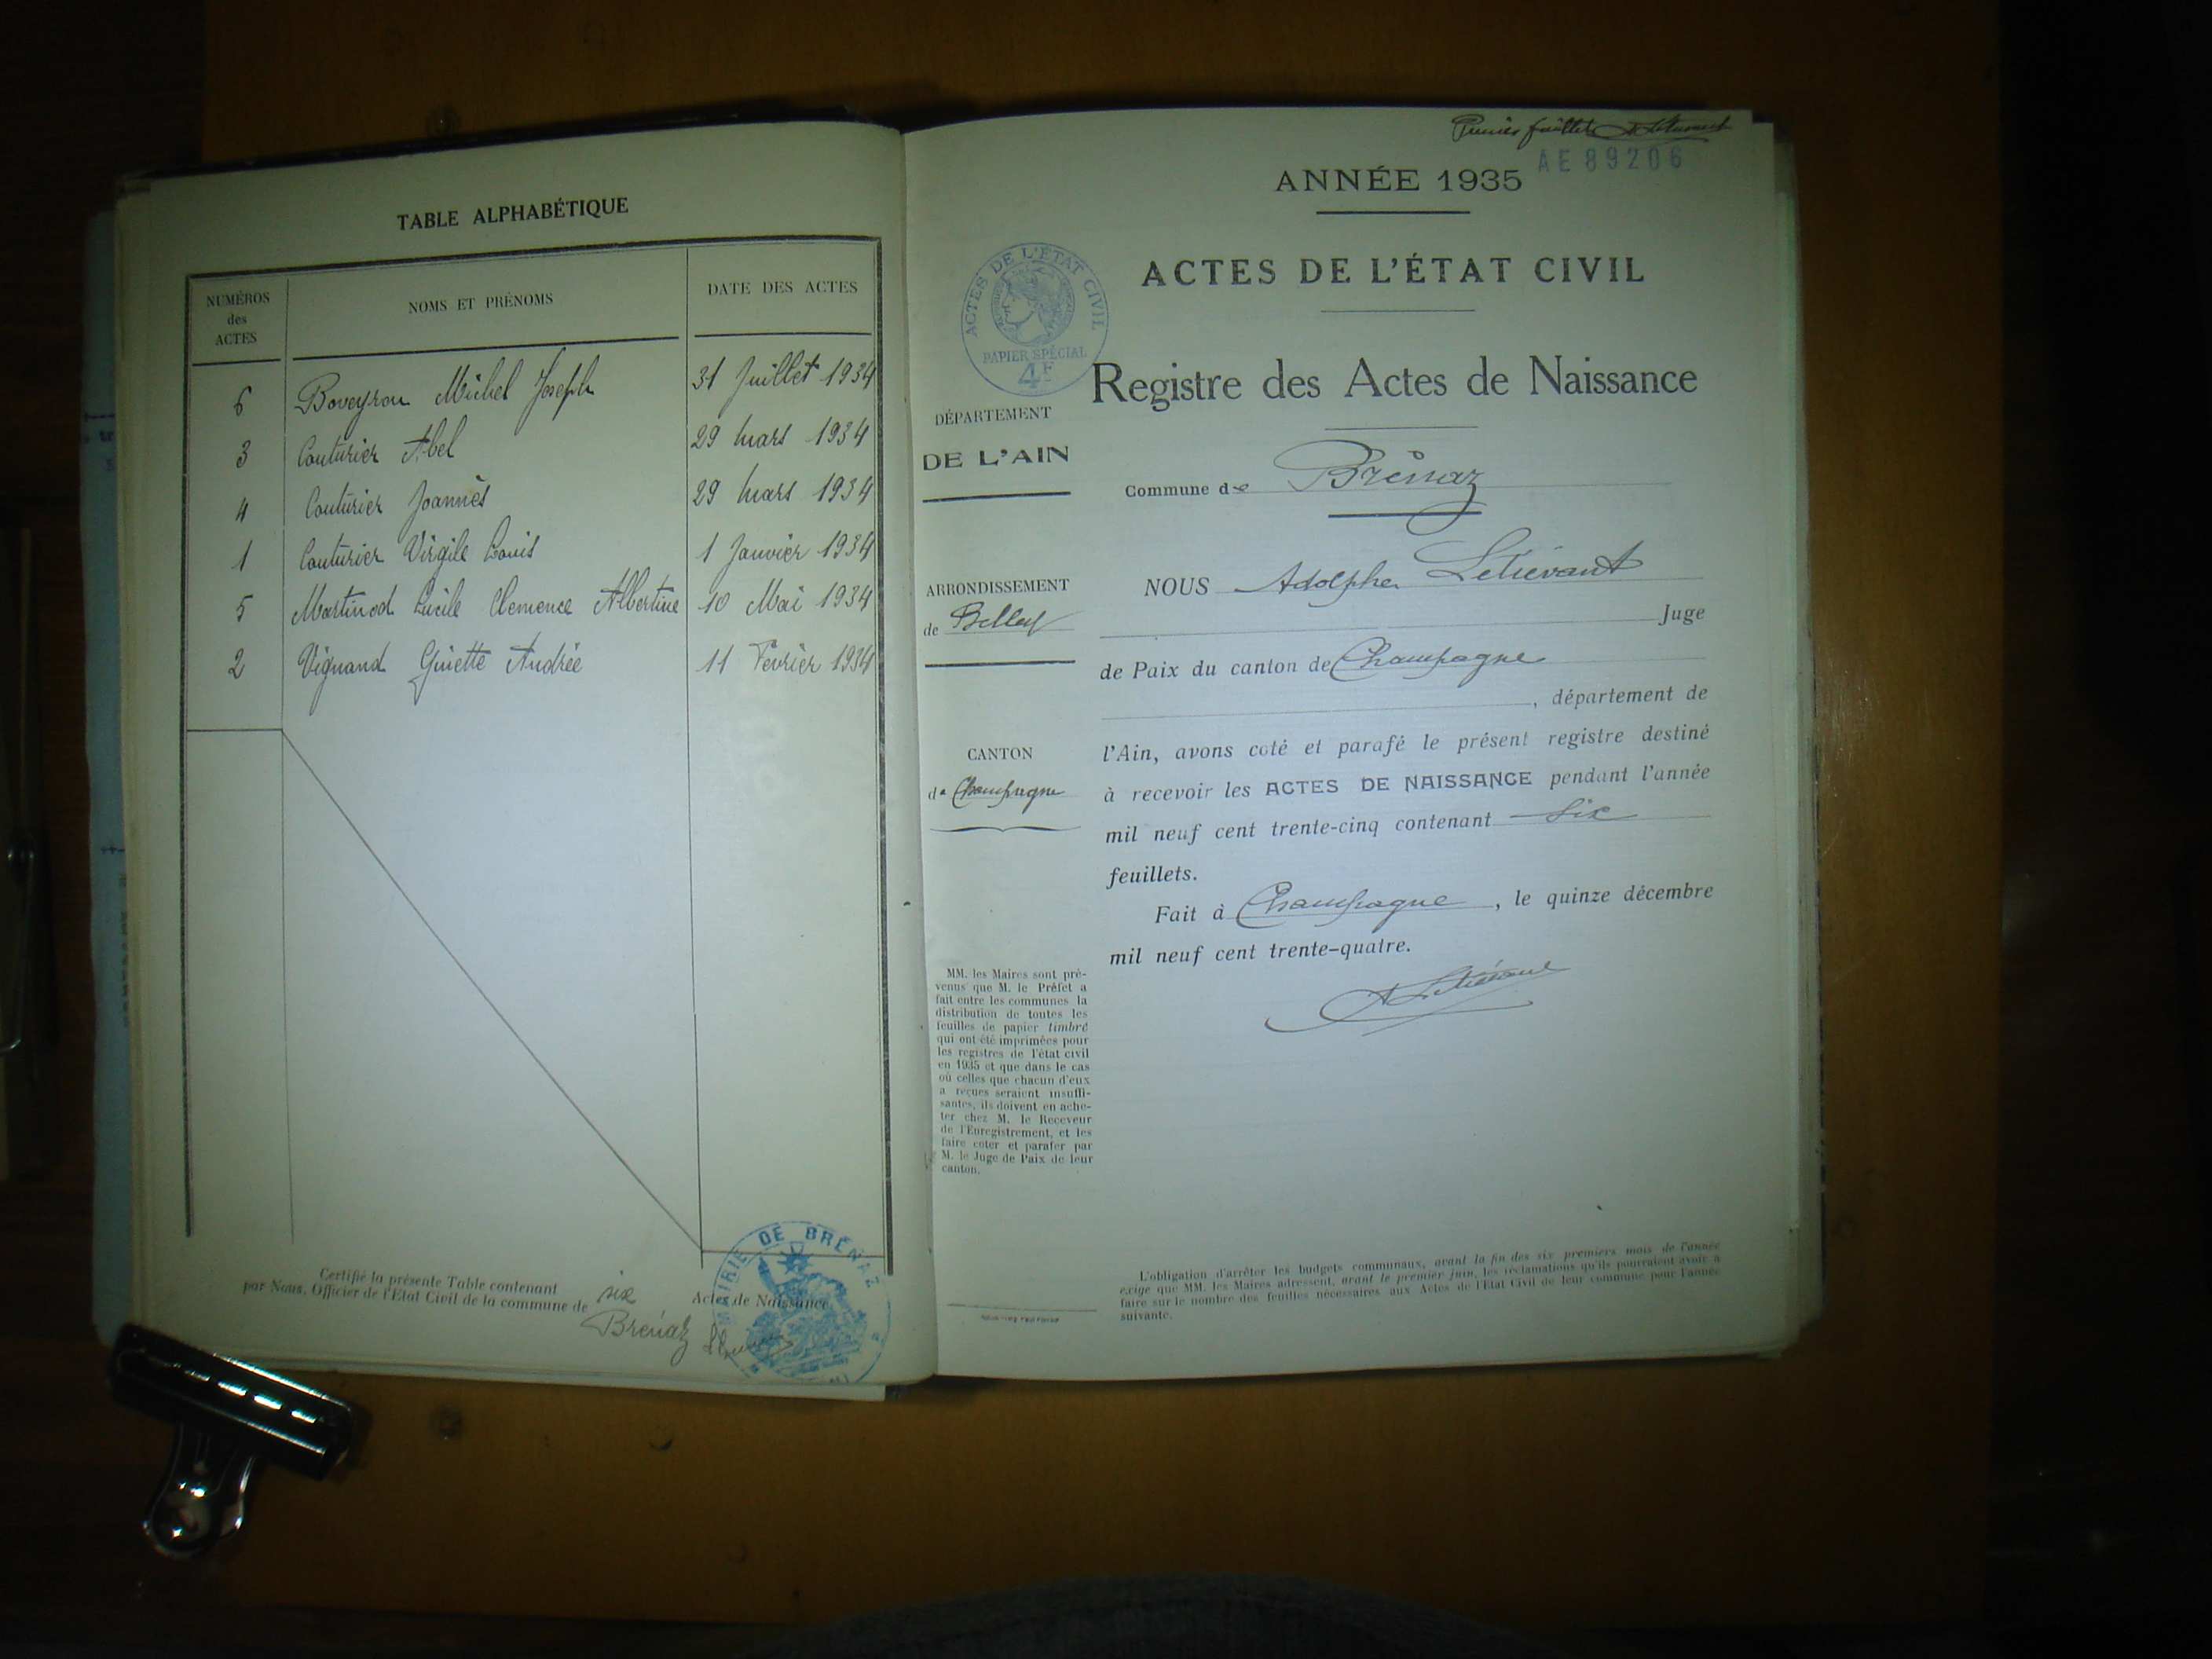 TABLE ALPHABÉTIQUE
NUMÉROS des ACTES NOMS ET PRÉNOMS DATE DES ACTES
6 Boveyron Michel Joseph 31 Juillet 1934
3 Couturier Abel 29 mars 1934
4 Couturier Joannès 29 mars 1934
1 Couturier Virgile Louis 1 Janvier 1934
5 Martinod Lucile Clemence Albertine 10 Mai 1934
2 Vignand Ginette Andrée 11 Fevrier 1934
Certifié la présente Table contenant six Actes de Naissance
par Nous, Officier de l'Etat Civil de la commune de Brénaz
MAIRIE DE BRÉNAZ
Premier feuillet
AE 89206
ANNÉE 1935
ACTES DE L'ÉTAT CIVIL
ACTES DE L'ÉTAT CIVIL
PAPIER SPÉCIAL
4F
Registre des Actes de Naissance
DÉPARTEMENT
DE L'AIN
Commune de Brénaz
ARRONDISSEMENT
de Belley
CANTON
de Champagne
NOUS Adolphe Létiévant
Juge
de Paix du canton de Champagne
, département de
l'Ain, avons coté et parafé le présent registre destiné
à recevoir les ACTES DE NAISSANCE pendant l'année
mil neuf cent trente-cinq contenant six
feuillets.
Fait à Champagne, le quinze décembre
mil neuf cent trente-quatre.
A Létiévant
MM. les Maires sont pré-
venus que M. le Préfet a
fait entre les communes la
distribution de toutes les
feuilles de papier timbré
qui ont été imprimées pour
les registres de l'état civil
en 1935 et que dans le cas
où celles que chacun d'eux
a reçues seraient insuffi-
santes, ils doivent en ache-
ter chez M. le Receveur
de l'Enregistrement, et les
faire coter et parafer par
M. le Juge de Paix de leur
canton.
L'obligation d'arrêter les budgets communaux, avant la fin des six premiers mois de l'année
exige que MM. les Maires adressent, avant le premier juin, les réclamations qu'ils pourraient avoir à
faire sur le nombre des feuilles nécessaires aux Actes de l'Etat Civil de leur commune pour l'année
suivante.